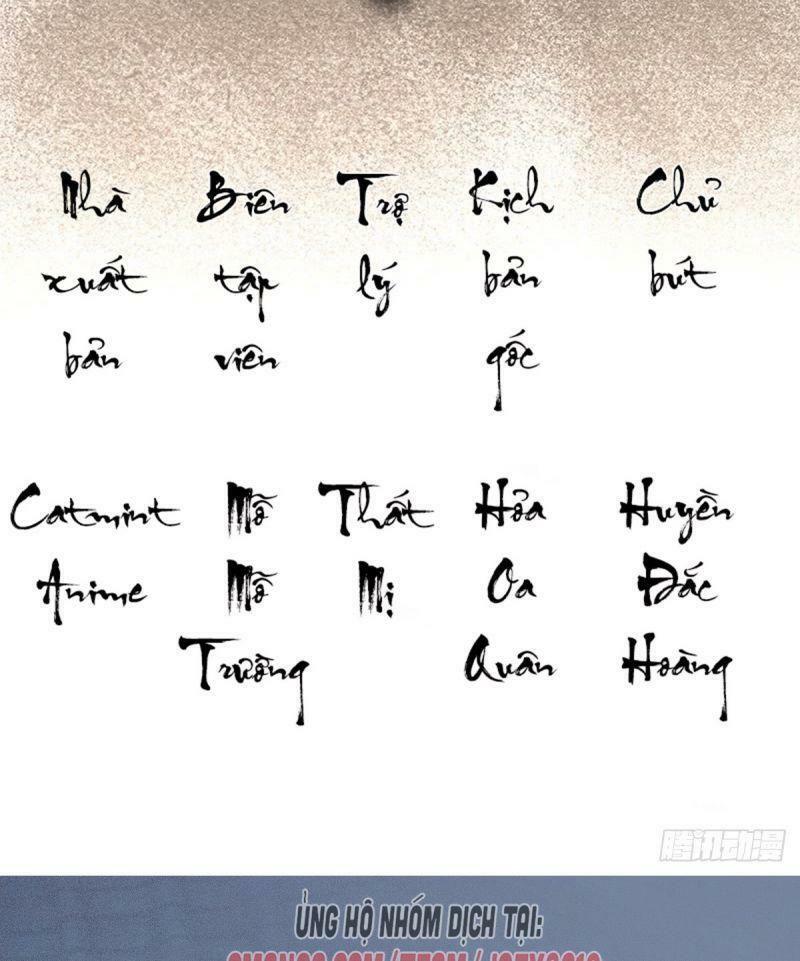 Nhà xuất bản
Biên tập viên
Trợ lý
Kịch bản gốc
Chủ bút
Catmint Anime
Mỗ Mỗ Trường
Thất Mị
Hỏa Oa Quân
Huyền Đắc Hoàng
腾讯动漫
ỦNG HỘ NHÓM DỊCH TẠI: